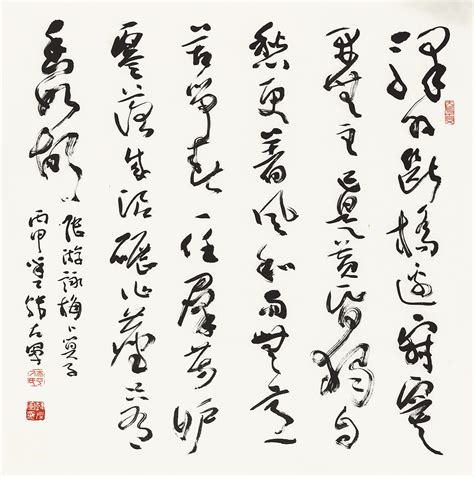 驛外斷橋邊寂寞
開無主已是黃昏獨自
愁更著風和雨無意
苦爭春一任羣芳妒
零落成泥碾作塵只有
香如故
陸游詠梅卜算子
丙申